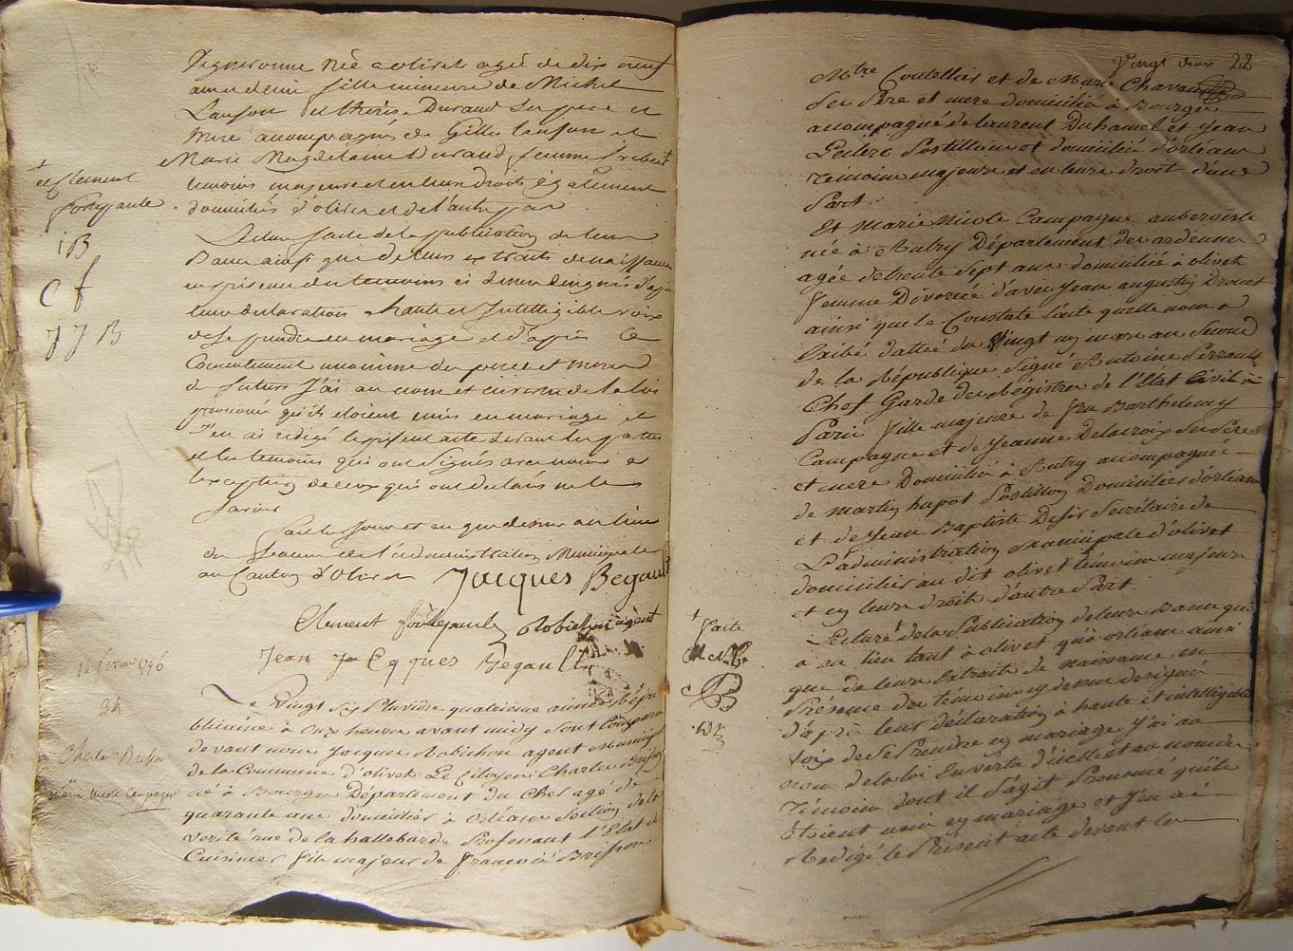 Vigneronne née a olivet agée de dix neuf
ans et demi fille mineure de Michel
Lanson et thérèse Durand ses pere et
mere accompagnés de Gilles Lanson et
Marie Magdelaine Durand femme
temoins majeurs et en leurs droits également
domiciliés d'olivet et de l'autre part
+
et Clement
fousepaule
i B
C f
J J B
Lecture faite de la publication de leurs
Bans ainsi que de leurs extraits de naissance
en presence des temoins ci dessus designés d'après
leur declaration a haute et Intelligible voix
de se prendre en mariage et d'après le
Consentement unanime des peres et meres
des futurs J'ai au nom et en vertu de la loi
prononcé qu'ils etoient unis en mariage et
J'en ai redigé le present acte devant les parties
et les temoins qui ont Signés avec nous a
l'exception de ceux qui ont declarés ne le
savoir
Fait les Jour et an que dessus au lieu
des Séances de l'administration Municipale
du Canton d'Olivet Jacques Begault
Clement Robichon agent
Jean Jacques Begault
24
Charles Brisson
Marie Nicole Campagne
Le Vingt Six Pluviôse quatrieme année Répu
blicaine à onze heures avant midy sont Comparus
devant nous Jacques Robichon agent Municipal
de la Commune d'olivet Le Citoyen Charles Brisson
né à Bourges Département du Cher agé de
quarante ans domicilié à orléans Section de la
verité rue de la hallebarde Professant l'Etat de
Cuisinier fils majeur de François Brisson
Vingt deux 22
Mtre Coutellier et de Marie Chavan
Ses Père et mere domiciliés à Bourges
accompagné de Laurent Duhamel et Jean
Leclerc Postillons domiciliés d'orléans
Témoins majeurs et en leurs droits d'une
Part.
Et Marie Nicole Campagne aubergiste
née à Autry Département des ardennes
agée de trente Sept ans domiciliée à olivet
femme Divorcée d'avec Jean augustin Drouet
ainsi que le Constate l'acte quelle nous a
Exibé dattée du Vingt mars an Second
de la République Signé Antoine
Chef Garde des Régistres de l'Etat Civil à
Paris fille majeure de feu Barthelemy
Campagne et de Jeanne Delacroix Ses Père
et mere Domiciliés à Autry accompagnée
de martin hupot Postillon Domiciliés d'orléans
et de Jean Baptiste Secrétaire de
L'administration municipale d'olivet
domiciliés au dit olivet témoins majeurs
et en leurs droits d'autre Part
+
faite
Lecture de la Publication de leurs Bans qui
a eu lieu tant à olivet qu'à orléans ainsi
que de leurs Extraits de naissance en
Présence des témoins cy dessus désignés
d'après leur déclaration à haute et intelligible
voix de Se Prendre en mariage J'ai au
nom de la loi En vertu d'icelle et au nom des
Témoins dont il S'agit Prononcé qu'ils
Etoient unis en mariage et J'en ai
Redigé le Present acte devant les